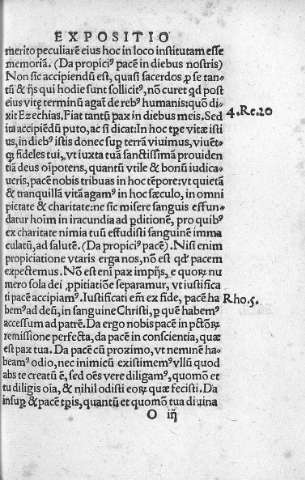 EXPOSITIO
merito peculiarẽ eius hoc in loco institutam esse
memoriã. (Da propici⁹ pacẽ in diebus nostris)
Non sic accipiendũ est, quasi sacerdos ꝑ se tan-
tũ & ijs qui hodie sunt sollicit⁹, nõ curet qđ post
eius vitę terminũ agat̃ de reb⁹ humanis: quõ di-
xit Ezechias. Fiat tantũ pax in diebus meis. Sed
ita accipiẽdũ puto, ac si dicat: In hoc tp̃e vitae isti
us, in dieb⁹ istis donec suꝑ terrã viuimus, viuẽt-
qꝫ fideles tui, vt iuxta tuã sanctissimã prouiden
tiã deus oĩpotens, quantũ vtile & bonũ iudica-
ueris, pacẽ nobis tribuas in hoc tẽpore: vt quietã
& tranquillã vitã agam⁹ in hoc sæculo, in omni
pietate & charitate: ne sic misere sanguis effun-
datur hoĩm in iracundia ad ꝑditionẽ, pro quib⁹
ex charitate nimia tuũ effudisti sanguinẽ imma
culatũ, ad salutẽ. (Da propici⁹ pacẽ) Nisi enim
propiciatione vtaris erga nos, nõ est qđ pacem
expectemus. Nõ est em̃ pax imp̃ijs, e quorꝫ nu-
mero sola dei ꝓpitiatiõe separamur, vt iustifica
ti pacẽ accipiam⁹. Iustificati em̃ ex fide, pacẽ ha
bem⁹ ad deũ, in sanguine Christi, ꝑ quẽ habem⁹
accessum ad patrẽ. Da ergo nobis pacẽ in pctõrꝫ
remissione perfecta, da pacẽ in conscientia, quæ
est pax tua. Da pacẽ cũ proximo, vt neminẽ ha-
beam⁹ odio, nec inimicũ existimem⁹ vllũ quod
abs te creatũ ẽ, sed oẽs vere diligam⁹, quomõ et
tu diligis oĩa, & nihil odisti eorꝫ quæ fecisti. Da
insuꝑ & pacẽ tp̃is, quantũ et quomõ tua diuina
O iij
4. Re. 20
Rho. 5.